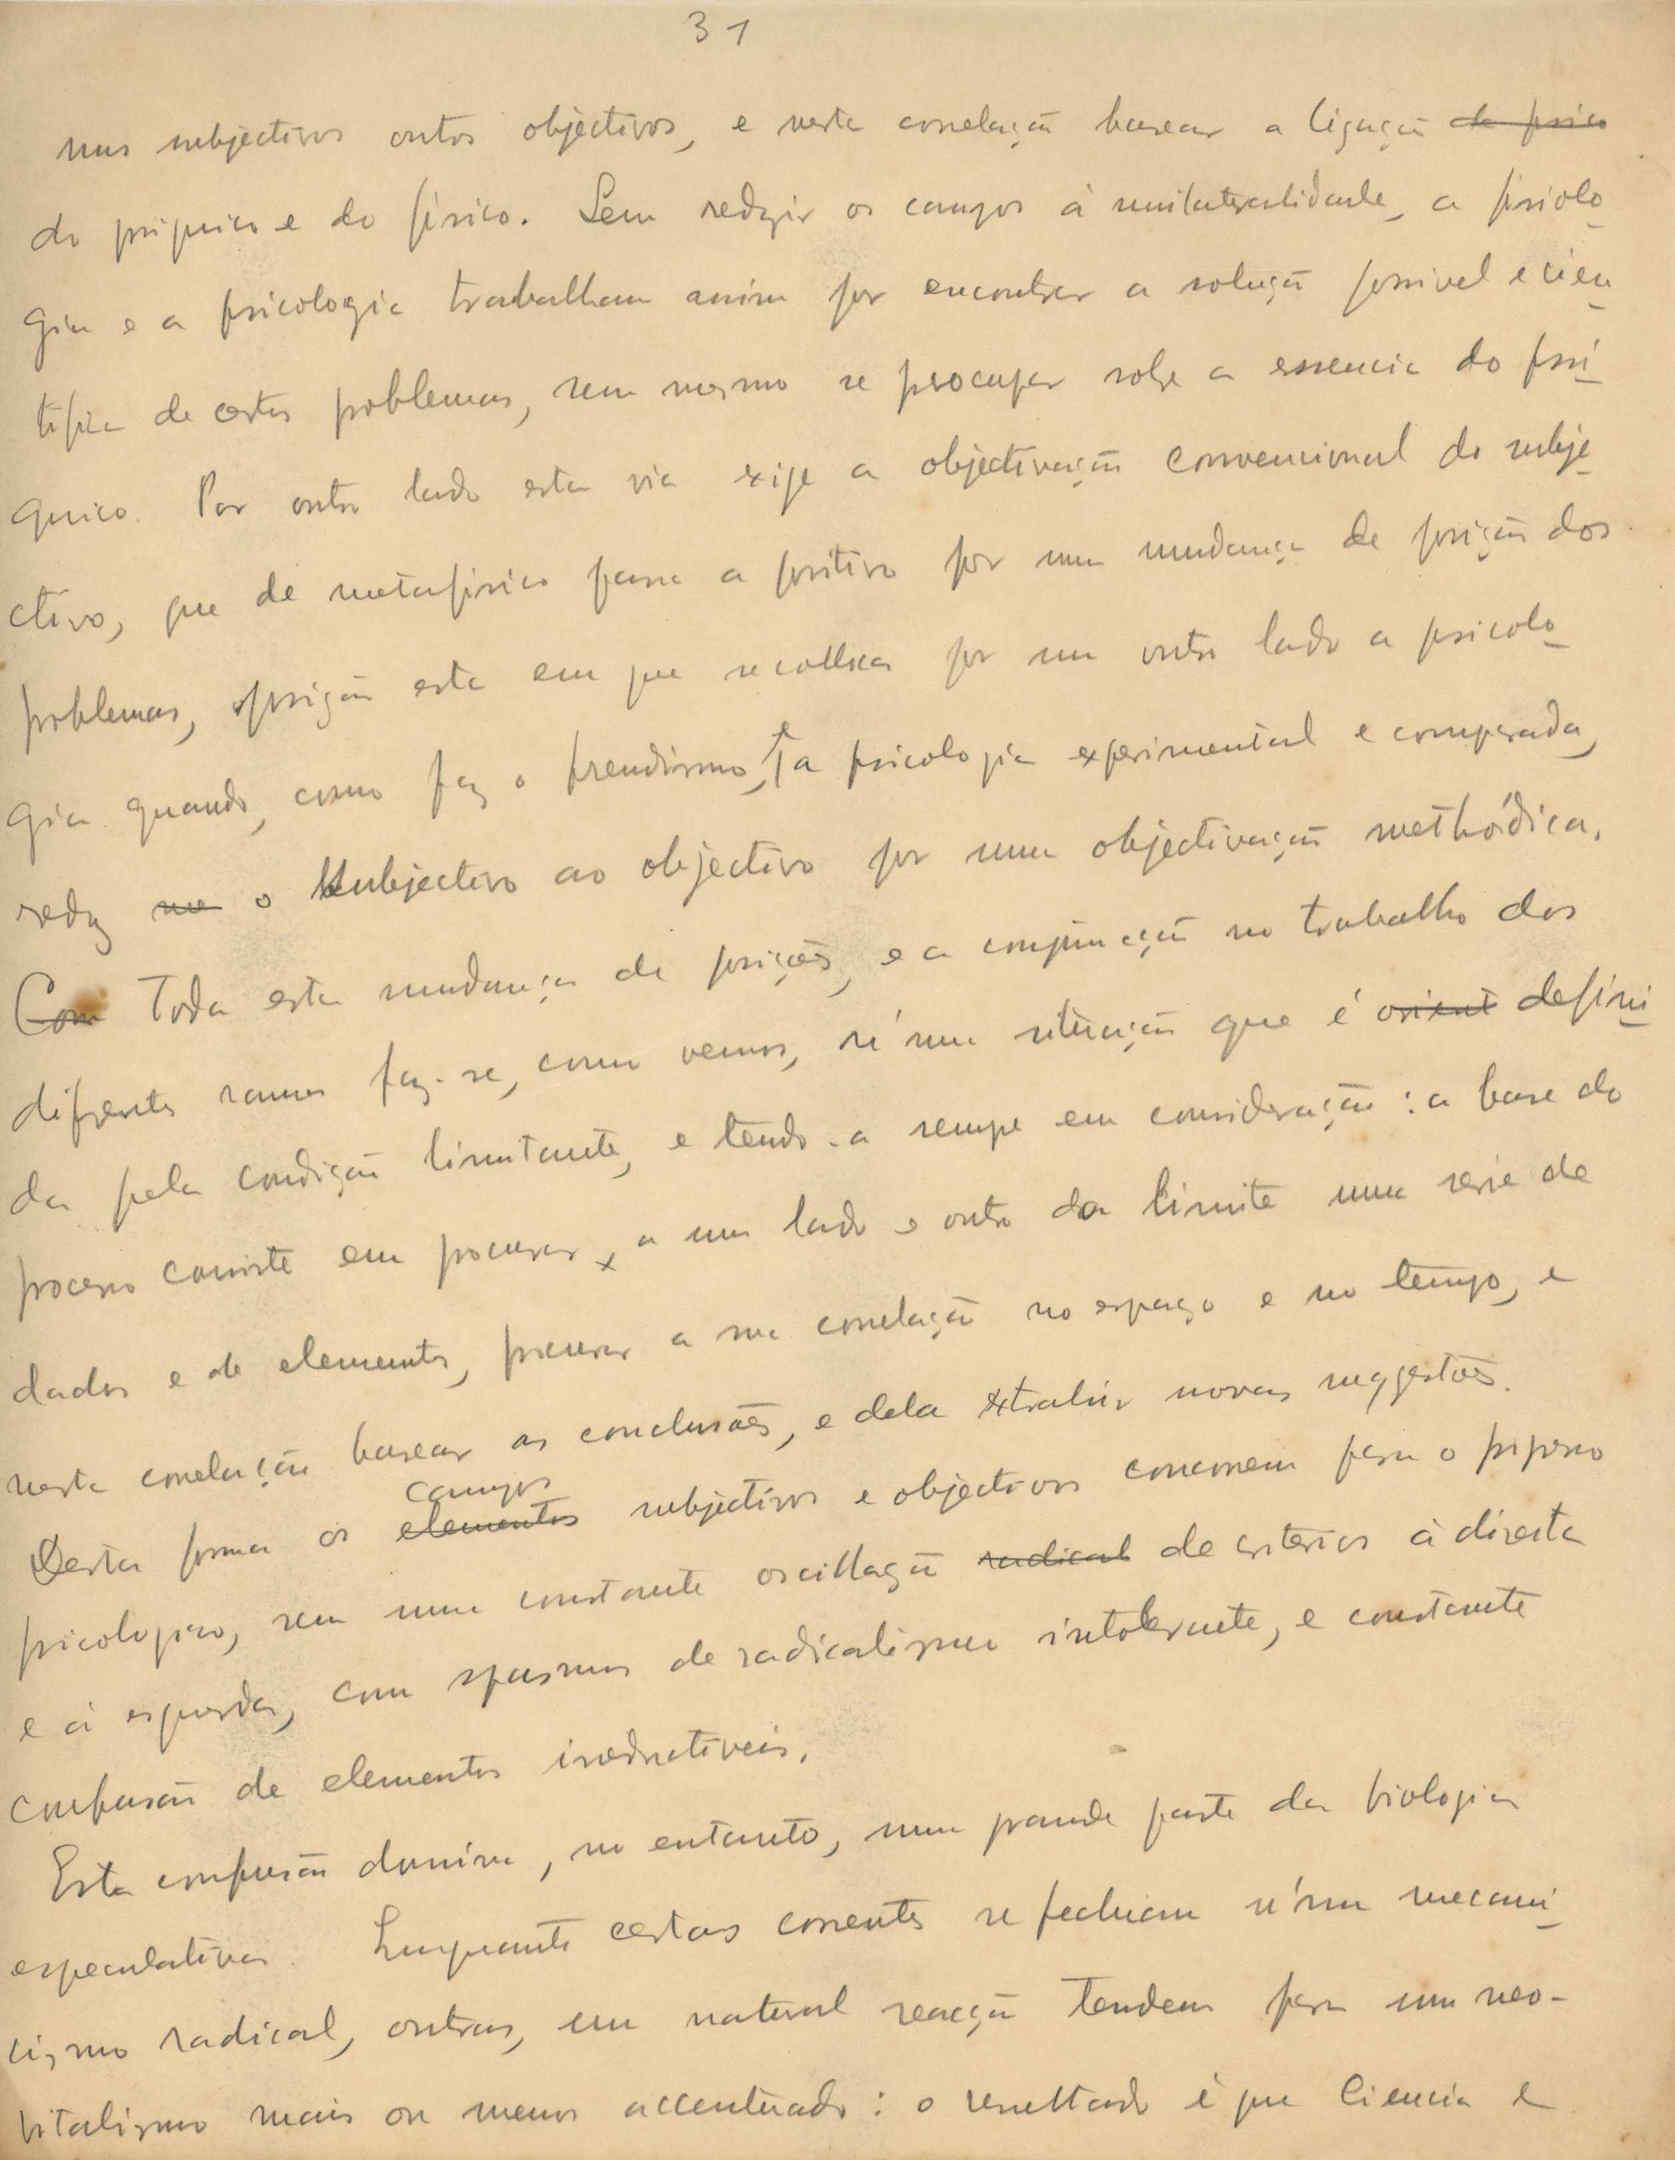 31
uns subjectivos outros objectivos, e nesta correlação basear a ligação do psico
do psiquico e do fisico. Sem reduzir os campos á unilateralidade, a fisiolo
gia e a psicologia trabalham assim por encontrar a solução possivel e cien
tifica de certos problemas, sem mesmo se preocupar sobre a essencia do psi
quico. Por outro lado esta via exige a objectivação convencional do subje
ctivo, que de metafisico passa a positivo por uma mudança de posição dos
problemas, posição esta em que se colloca por um outro lado a psicolo
gia quando, como faz o freudismo, e a psicologia experimental e comparada,
reduz o subjectivo ao objectivo por uma objectivação methódica.
Com Toda esta mudança de posições, e a conjuncção no trabalho dos
diferentes ramos faz-se, como vemos, n'uma situação que é orient defini
da pela condição limitante, e tendo-a sempre em consideração: a base do
processo consiste em procurar, a um lado e outro do limite uma serie de
dados e de elementos, procurar a sua correlação no espaço e no tempo, e
nesta correlação basear as conclusões, e dela extrahir novas suggestões.
Desta forma os elementos campos subjectivos e objectivos concorrem para o progresso
psicologico, sem uma constante oscillação radical de criterios á direita
e á esquerda, com espasmos de radicalismo intolerante, e constante
confusão de elementos irreductiveis.
Esta confusão domina, no entanto, uma grande parte da biologia
especulativa. Emquanto certas correntes se fecham n'um mecani
cismo radical, outras, em natural reacção tendem para um neo-
vitalismo mais ou menos accentuado: o resultado é que Ciencia e